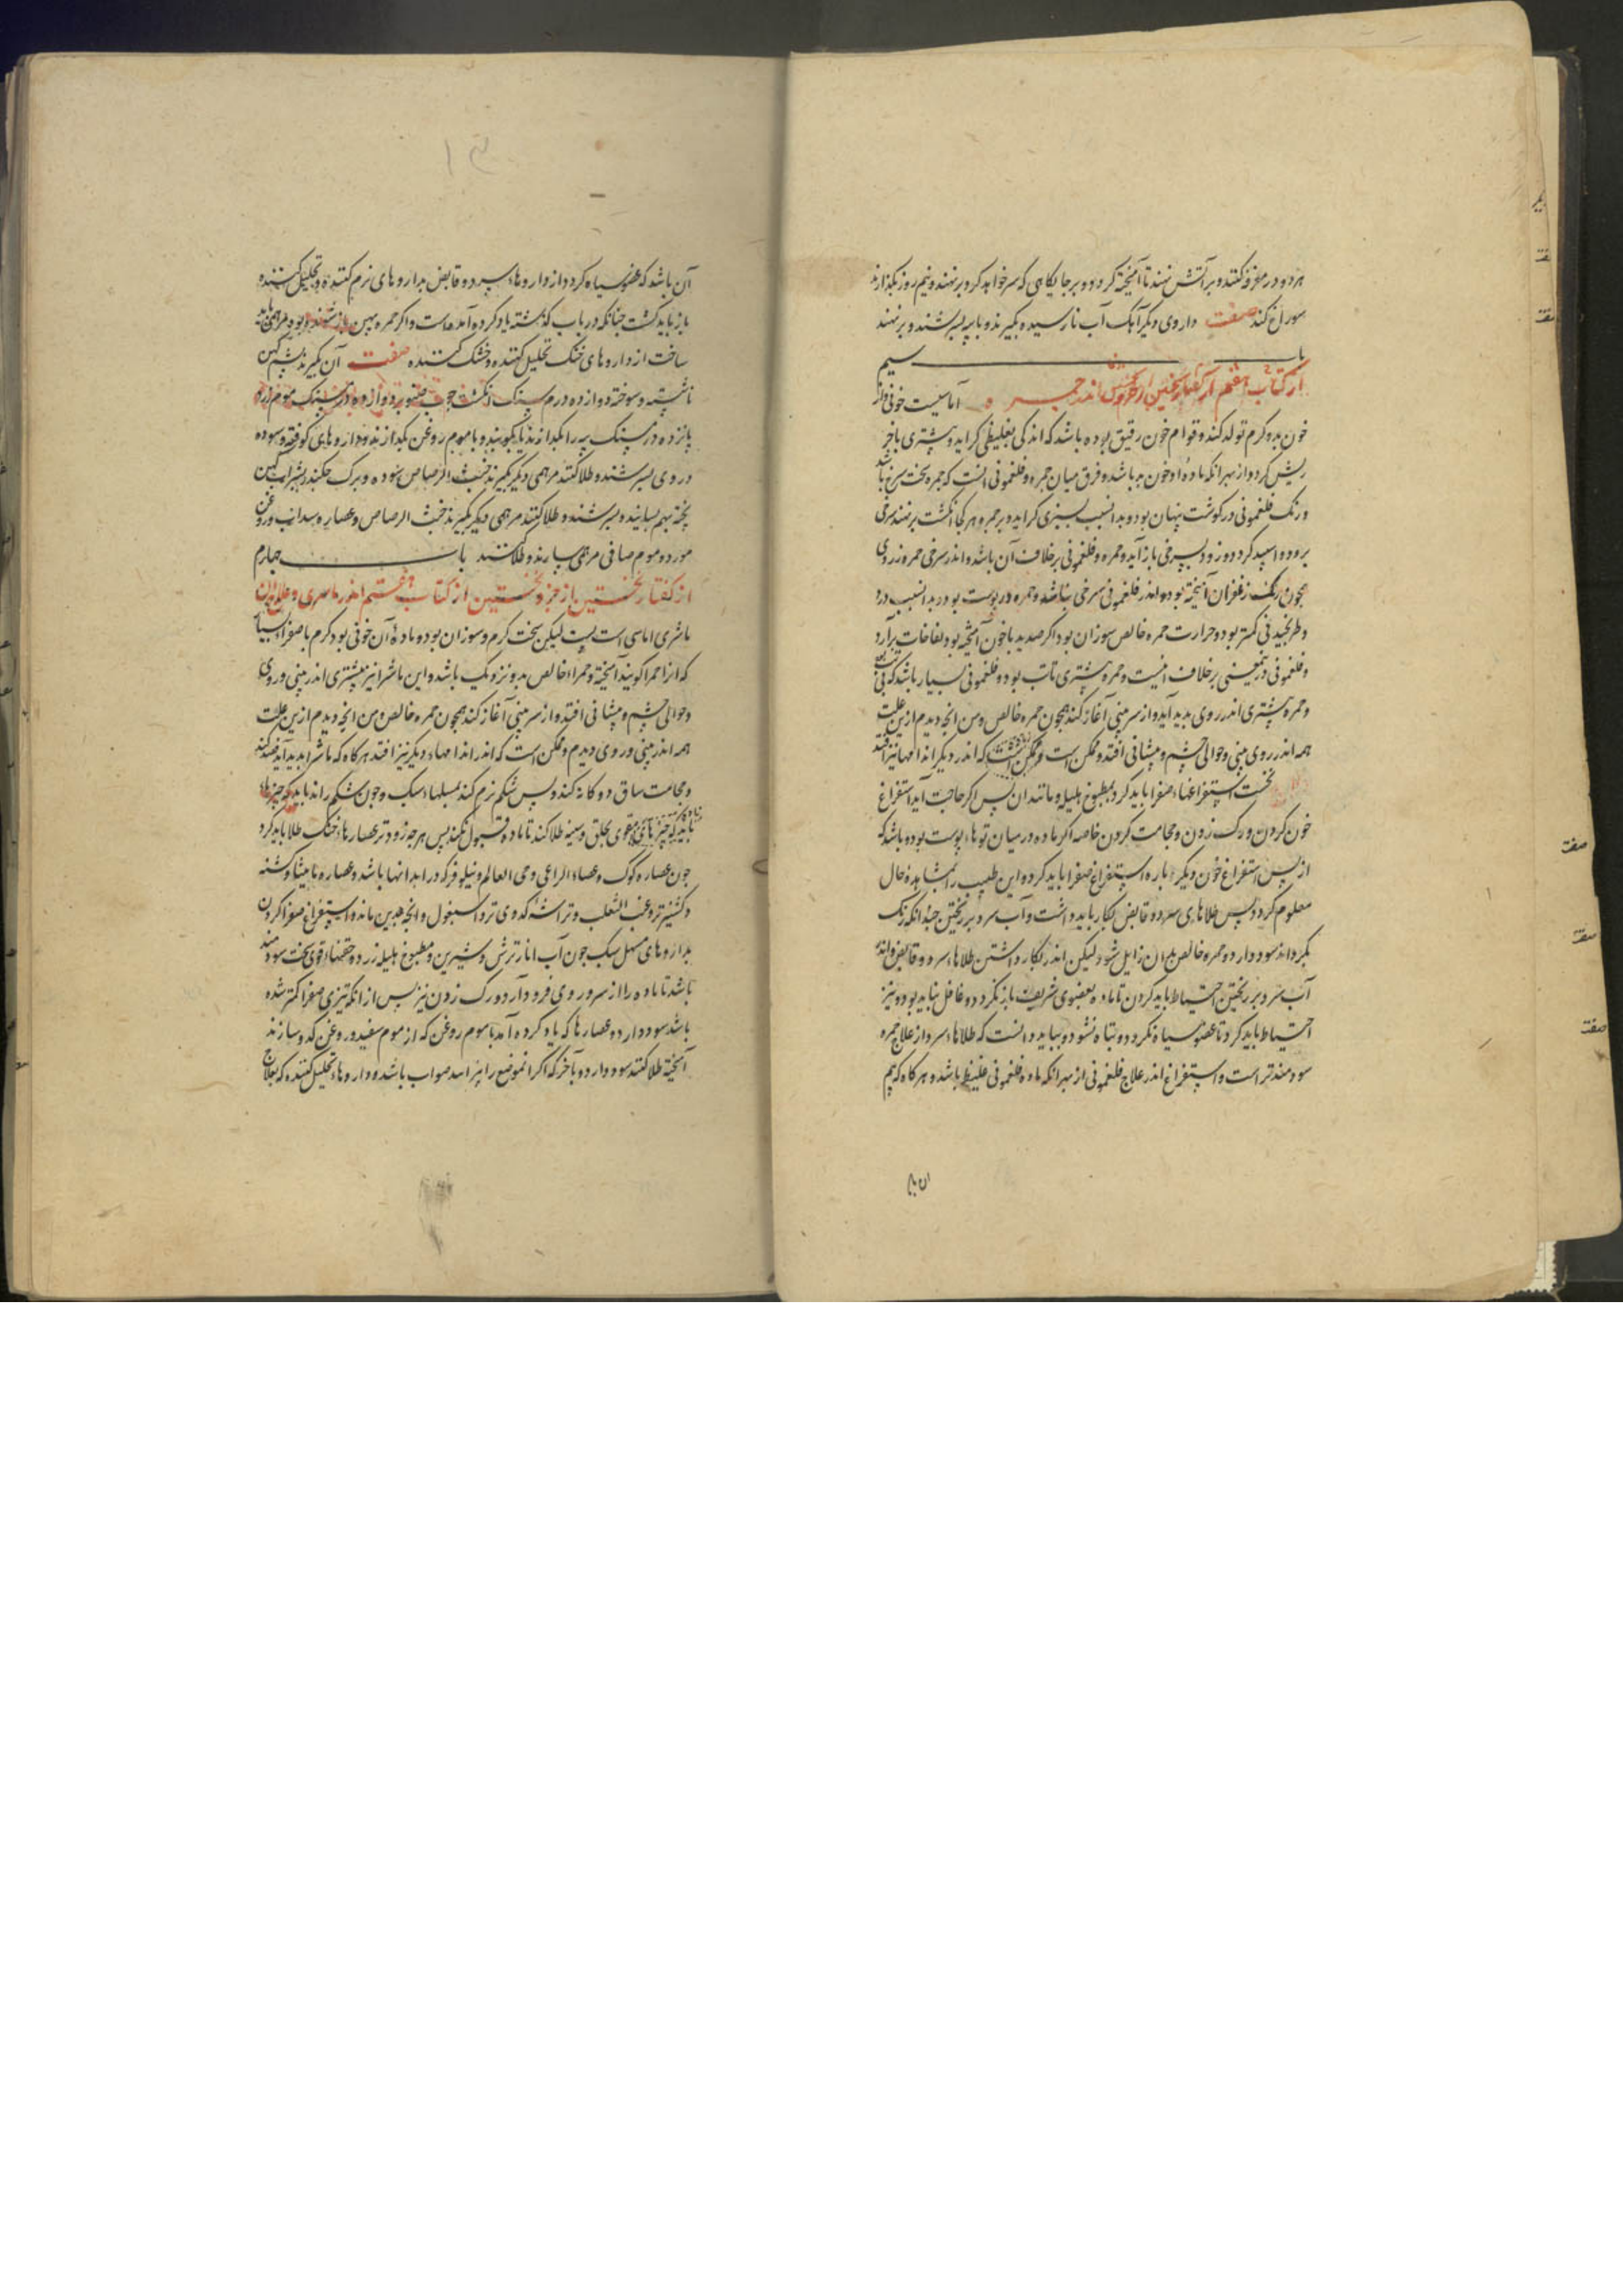 هر دو در مغرفه کنند و بر آتش نهند تا آمیخته کردد و بر جایکاهی که سر خواهد کرد بر نهند و نیم روز بکذارند
سوراخ کند صفت داروی دیکر آهک آب نارسیده بکیرند و با پیه بسرشند و بر نهند
باب سیم
از کتاب هفتم از کفتار نخستین از جزو نخستین اندر حمره آماسیست خونی و از
خون بد و کرم تولد کند و قوام خون رقیق بوده باشد که اندکی بغلیظی کراید و بیشتری باخر
ریش کردد از بهر انکه ماده او خون بد باشد و فرق میان حمره و فلغمونی انست که حمره سخت سرخ باشد
و رنک فلغمونی در کوشت پنهان بود و بدانسبب بسبزی کراید و بر حمره هر کجا انکشت بر نهند سرخی
برود و اسپید کردد و زود بسرخی باز آید و حمره و فلغمونی بر خلاف آن باشد و اندر سرخی حمره زردی
همچون رنک زعفران آمیخته بود و اندر فلغمونی سرخی نباشد و حمره در پوست بود و بدانسبب درد
و طرنجیدنی کمتر بود و حرارت حمره خالص سوزان بود و اکر صدید با خون آمیخته بود نفاخات برآرد
و فلغمونی در معنی بر خلاف اینست و حمره بیشتری با تب بود و فلغمونی بسیار باشد که بی تب بود
و حمره بیشتری اندر روی پدید آید و از سر بینی آغاز کند همچون حمره خالص و من انچه دیدم ازین علت
همه اندر روی بینی و حوالی چشم و پیشانی افتد و ممکن است که اندر دیکر اندامها نیز افتد
نخست استفراغهاء صفرا باید کرد بمطبوخ هلیله و مانند ان پس اکر حاجت آید استفراغ
خون کردن و رک زدن و حجامت کردن خاصه اکر ماده در میان توهاء پوست بود و باشد که
از پس استفراغ خون دیکر باره استفراغ صفرا باید کرد و این طبیب را بمشاهده حال
معلوم کردد و پس طلاهای سرد و قابض بکار باید داشت و آب سرد بر ریختن چندانکه رنک
بکرداند سود دارد و حمره خالص بدان زایل شود لیکن اندر بکار داشتن طلاهاء سرد و قابض و اندر
آب سرد بر ریختن احتیاط باید کردن تا ماده بعضوی شریف باز نکردد و غافل نباید بود و نیز
احتیاط باید کرد تا عضو سیاه نکردد و تباه نشود و بباید دانست که طلاهاء سرد از علاج حمره
سودمندتر است و استفراغ اندر علاج فلغمونی از بهر انکه ماده فلغمونی غلیظ باشد و هر کاه که بیم
آن باشد که عضو سیاه کردد از داروهاء سرد و قابض بداروهای نرم کننده و تحلیل کننده
باز باید کشت چنانکه در باب کذشته یاد کرده آمده است و اکر حمره بهین باز نشود و بود مرهمی باید
ساخت از داروهای خشک تحلیل کننده و خشک کننده صفت آن بکیرند پشم کهن
ناشسته و سوخته دوازده درم سنک انکشت چوب صنوبر دوازده درم سنک موم زرد
پانزده درم سنک پیه را بکدازند یا بکوبند و با موم روغن بکدازند و داروهای کوفته و سوده
در وی بسرشند و طلا کنند مرهمی دیکر بکیرند خبث الرصاص سوده و برک چکندر بشراب کهن
پخته بهم بسایند و بسرشند و طلا کنند مرهمی دیکر بکیرند خبث الرصاص و عصاره سداب و روغن
مورد و موم صافی مرهمی سازند و طلا کنند باب چهارم
از کفتار نخستین از جزو نخستین از کتاب هفتم اندر ماشری و علاج آن
ماشری اماسی است پست لیکن سخت کرم و سوزان بود و ماده آن خونی بود کرم با صفراء بسیار
که انرا حمرا کویند آمیخته و حمراء خالص بدو نزدیک باشد و این ماشرا نیز بیشتری اندر بینی و روی
و حوالی چشم و پیشانی افتد و از سر بینی آغاز کند همچون حمره خالص و من انچه دیدم ازین علت
همه اندر بینی و روی دیدم و ممکن است که اندر اندامهاء دیکر نیز افتد هر کاه که ماشرا پدید آید فصد کند
و حجامت ساق دوکانه کند و پس شکم نرم کند بمسهلهاء سبک و چون شکم راند باید که چیزهاء
باید که چیزهای مقوی بحلق و سینه طلا کند تا ماده قبول نکند پس هر چه زودتر عصارهاء خنک طلا باید کرد
چون عصاره کوک و عصاء الراعی و حی العالم و نیلوفر که در ابدانها باشد و عصاره مامیثا و کشنه
و کشنیز تر و عنب الثعلب و تراشه کدوی تر و اسبغول و انچه بدین ماند و استفراغ صفرا کردن
بداروهای مسهل سبک چون آب انار ترش و شیرین و مطبوخ هلیله زرد و حقنهاء قوی سخت سودمند
باشد تا ماده را از سر و روی فرود آرد و رک زدن نیز پس از انکه تیزی صفرا کمتر شده
باشد سود دارد و عصارها که یاد کرده آمد با موم روغن که از موم سفید و روغن کدو سازند
آمیخته طلا کنند سود دارد و بآخر که اکر انموضع را بپزانند صواب باشد و داروهاء تحلیل کننده که بعلاج